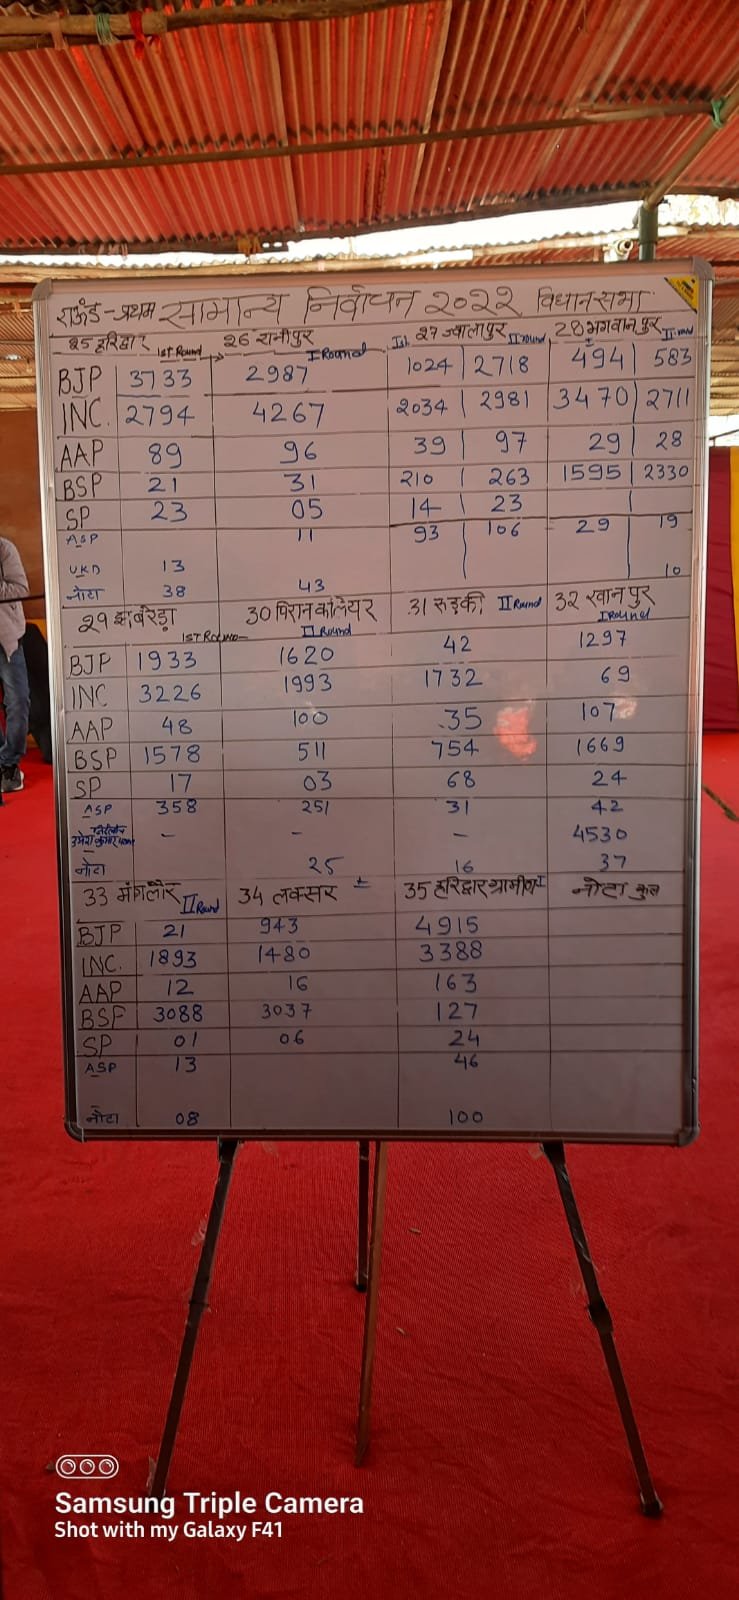 राऊंड-प्रथम सामान्य निर्वाचन २०२२ विधानसभा
25 हरिद्वार 1ST Round 26 रानीपुर I Round Ist 27 ज्वालापुर II round 28 भगवानपुर II round
BJP 3733 2987 1024 2718 494 583
INC. 2794 4267 2034 2981 3470 2711
AAP 89 96 39 97 29 28
BSP 21 31 210 263 1595 2330
SP 23 05 14 23
ASP 11 93 106 29 19
UKD 13 10
नोटा 38 43
29 झबरेड़ा 1ST Round 30 पिरान कलियर II Round 31 रुड़की II Round 32 खानपुर I Round
BJP 1933 1620 42 1297
INC 3226 1993 1732 69
AAP 48 100 35 107
BSP 1578 511 754 1669
SP 17 03 68 24
ASP 358 251 31 42
उमेश कुमार - - - 4530
नोटा 25 16 37
33 मंगलौर II Round 34 लक्सर I 35 हरिद्वार ग्रामीण I नोटा कुल
BJP 21 943 4915
INC. 1893 1480 3388
AAP 12 16 163
BSP 3088 3037 127
SP 01 06 24
ASP 13 46
नोटा 08 100
Samsung Triple Camera
Shot with my Galaxy F41